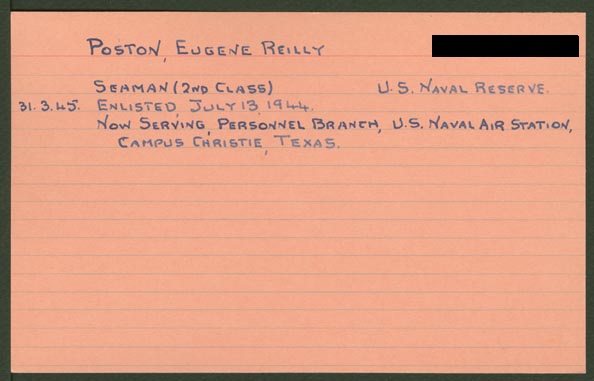 POSTON, EUGENE REILLY
SEAMAN (2ND CLASS) U.S. NAVAL RESERVE.
31.3.45. ENLISTED, JULY 13, 1944.
NOW SERVING, PERSONNEL BRANCH, U.S. NAVAL AIR STATION,
CAMPUS CHRISTIE, TEXAS.